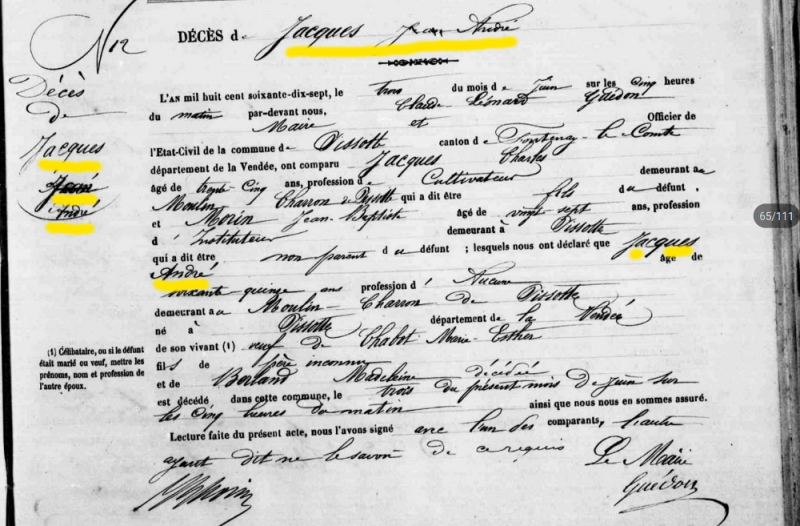 N 12
DÉCÈS de Jacques Jean André
Décès
de
Jacques
Jean
André
L'AN mil huit cent soixante-dix-sept, le trois du mois de Juin sur les cinq heures
du matin par-devant nous, Claude Léonard Guédon
Maire et Officier de
l'Etat-Civil de la commune de Pissotte canton de Fontenay-le-Comte
département de la Vendée, ont comparu Jacques Charles
âgé de trente-cinq ans, profession d Cultivateur demeurant au
Moulin Charron de Pissotte qui a dit être fils du défunt,
et Morin Jean-Baptiste âgé de vingt sept ans, profession
d'Instituteur demeurant à Pissotte
qui a dit être non parent du défunt ; lesquels nous ont déclaré que Jacques
André âgé de
soixante-quinze ans profession d' Aucune
demeurant au Moulin-Charron de Pissotte
né à Pissotte département de la Vendée
de son vivant (1) veuf de Chabot Marie-Esther
fils de père inconnu
et de Borland Madeleine décédée
est décédé dans cette commune, le trois du présent mois de Juin sur
les cinq heures du matin ainsi que nous nous en sommes assuré.
Lecture faite du présent acte, nous l'avons signé avec l'un des comparants, l'autre
ayant dit ne le savoir de ce requis
Le Maire
Guédon
(1) Célibataire, ou si le défunt
était marié ou veuf, mettre les
prénoms, nom et profession de
l'autre époux.
65/111